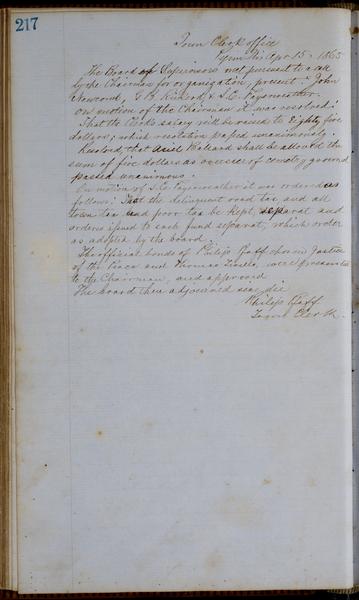 217
Town Clerk office
Apr 15 1865
The Board of Supervisors met pursuant to call
by the Chairman for organization, present John
Newcomb, G. B.
On motion of the Chairman it was resolved:
That the Clerks salery will be raised to Eighty five
dollars; which resolution passed unanimously.
Resolved, that Asiel Ballard shall be allowed the
sum of five dollars as overseer of cemetry ground
passed unanimous.
On motion of it was ordered as
follows: That the delinquent road tax and all
town tax and poor tax be kept separat and
orders issued to each fund separat, which order
as adopted by the board.
The official bonds of Philip Pfaff chosen Justice
of the Peace and Thomas were presented
to the Chairman, and approved
The board then adjourned sine die
Philip Pfaff
Town Clerk.